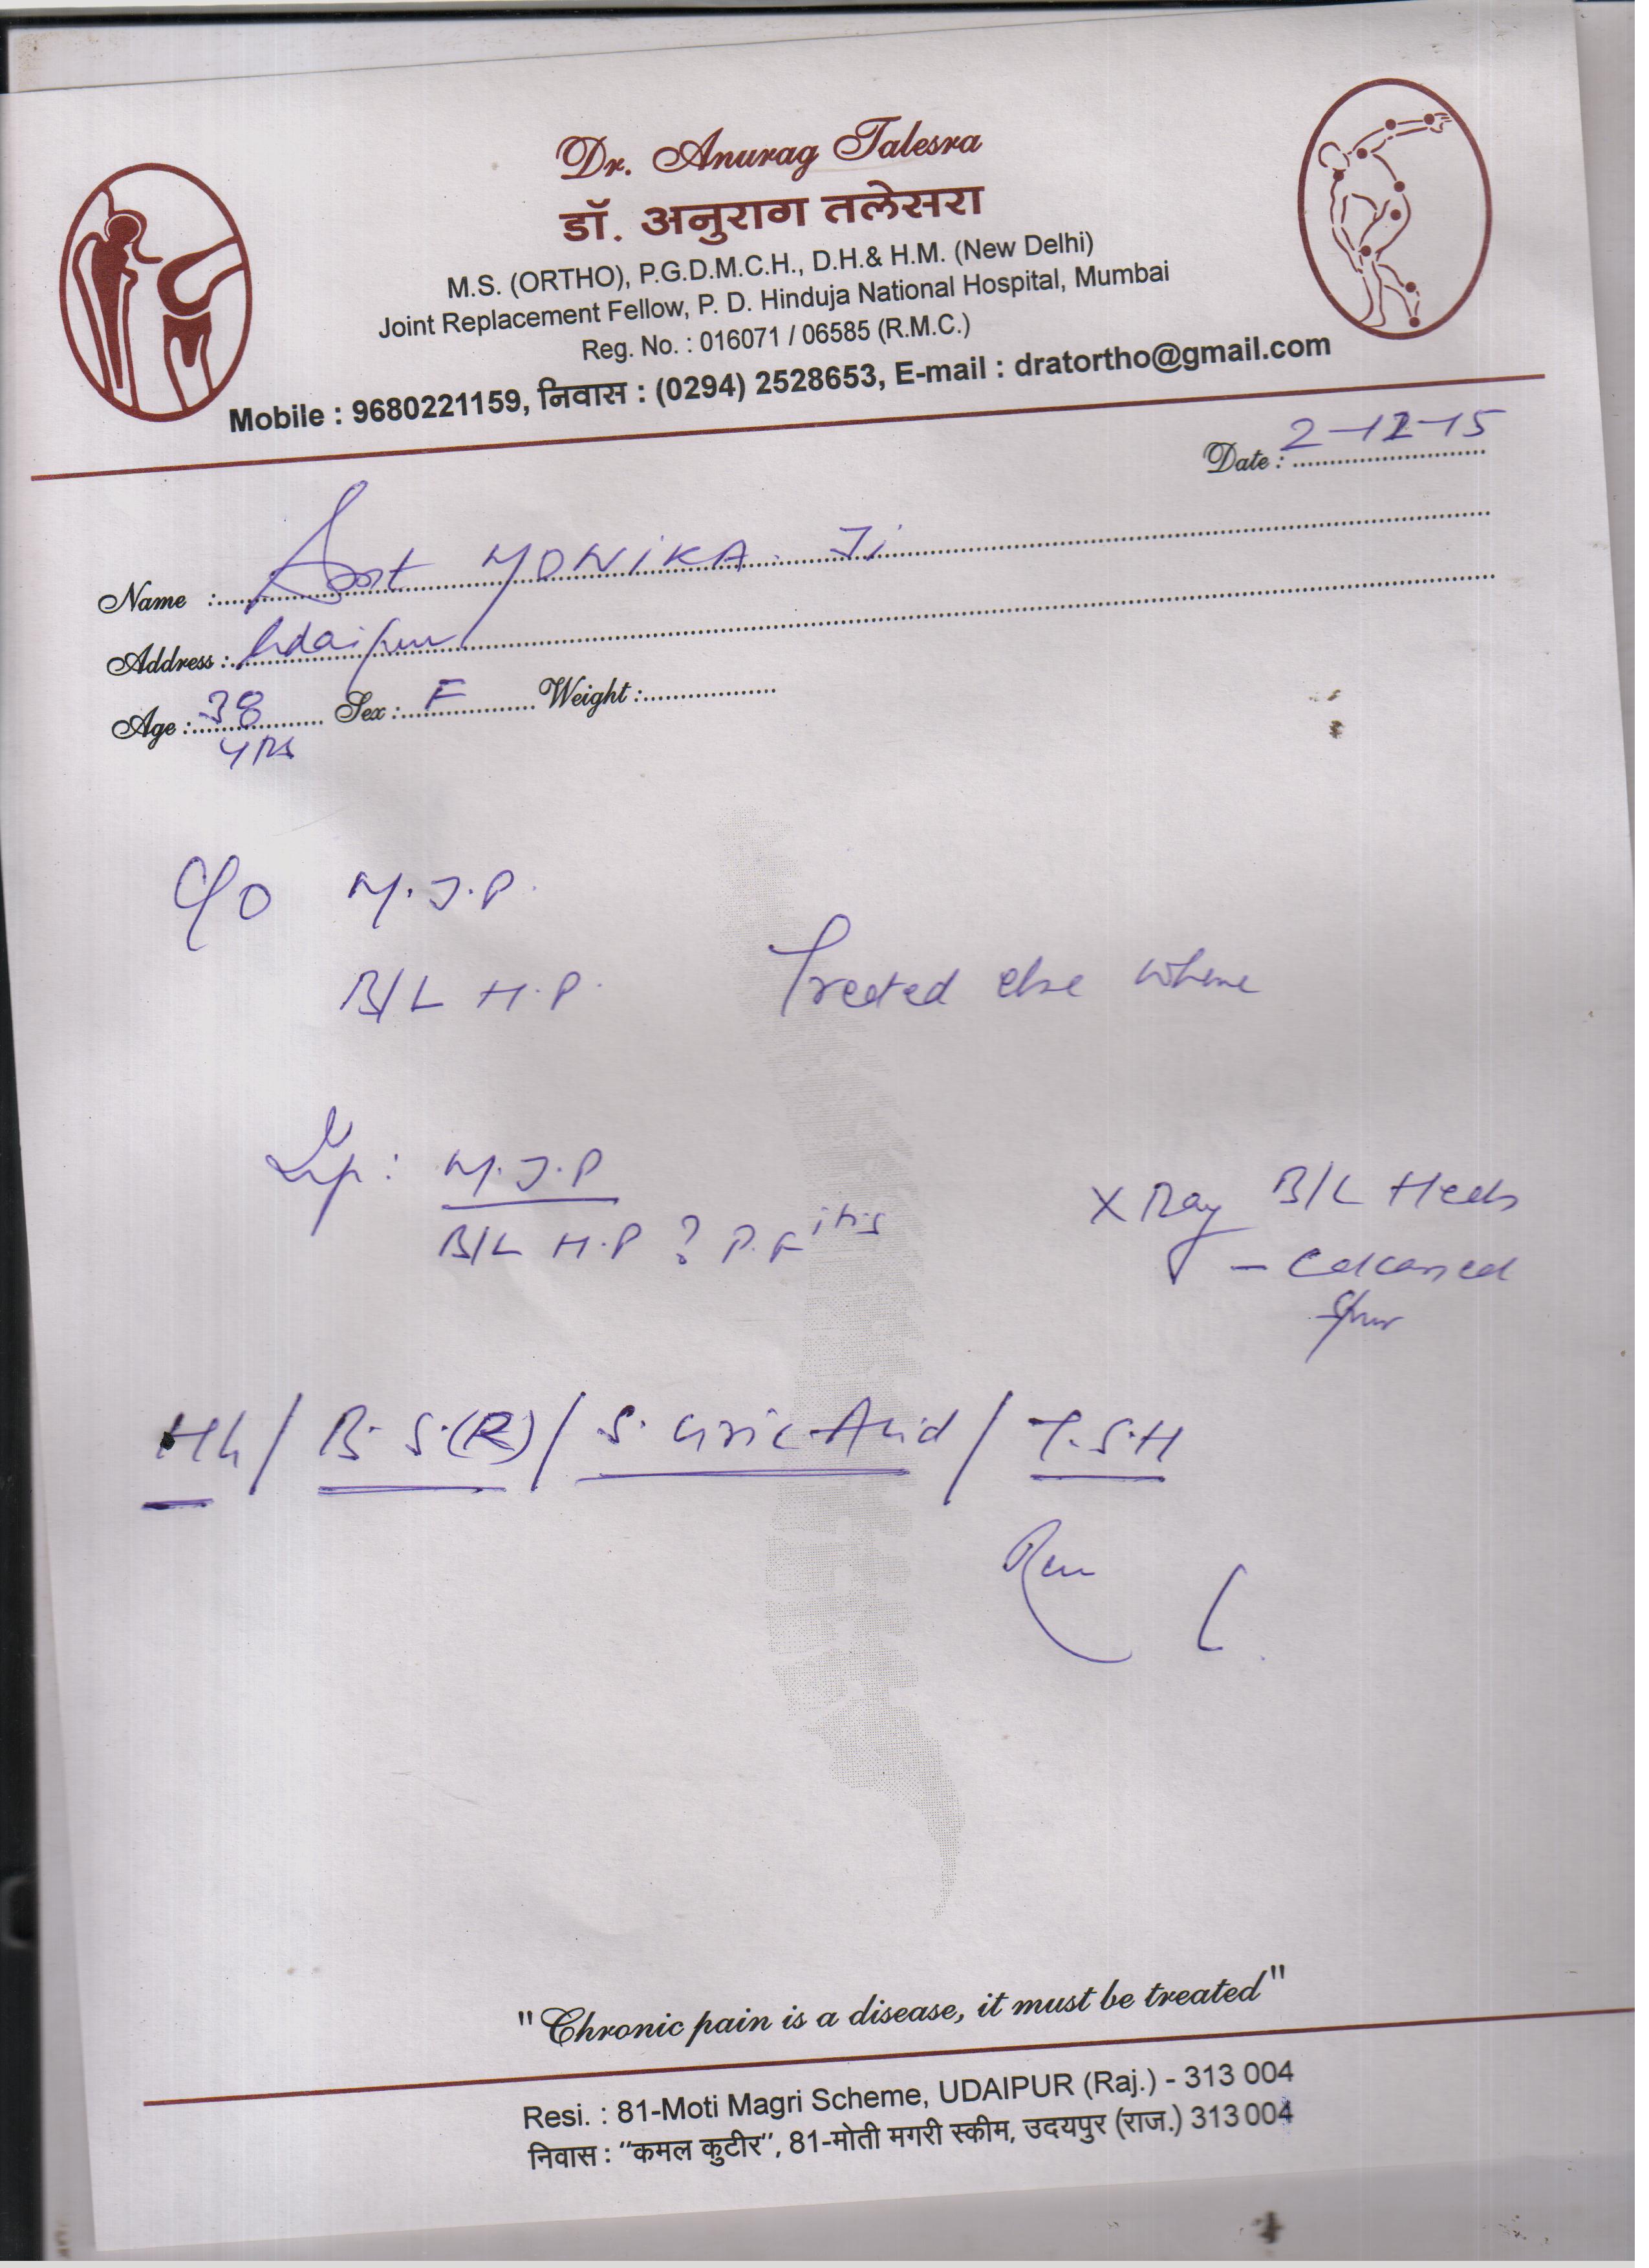 Dr. Anurag Talesra
डॉ. अनुराग तलेसरा
M.S. (ORTHO), P.G.D.M.C.H., D.H.& H.M. (New Delhi)
Joint Replacement Fellow, P. D. Hinduja National Hospital, Mumbai
Reg. No. : 016071 / 06585 (R.M.C.)
Mobile : 9680221159, निवास : (0294) 2528653, E-mail : dratortho@gmail.com
Date : 2-12-15
Name : Smt MONIKA Ji
Address : Udaipur
Age : 38 Sex : F Weight :
yrs
C/o M.J.P.
B/L H.P. Treated else where
Imp: M.J.P
B/L H.P ? P.F itis
X Ray B/L Heels
- calcaneal
spur
Hb / B.S.(R) / S. Uric Acid / T.S.H
"Chronic pain is a disease, it must be treated"
Resi. : 81-Moti Magri Scheme, UDAIPUR (Raj.) - 313 004
निवास : “कमल कुटीर”, 81-मोती मगरी स्कीम, उदयपुर (राज.) 313 004